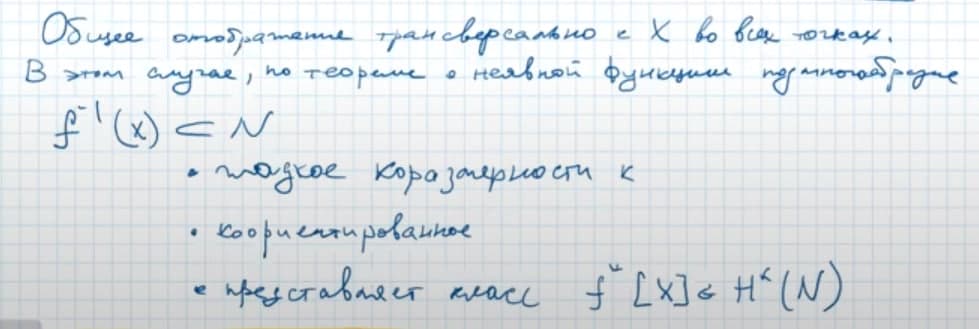 Общее отображение трансверсально с X во всех точках.
В этом случае, по теореме о неявной функции подмногообразие
f⁻¹(X) ⊂ N
• гладкое коразмерности k
• коориентированное
• представляет класс f*[X] ∈ Hᵏ(N)